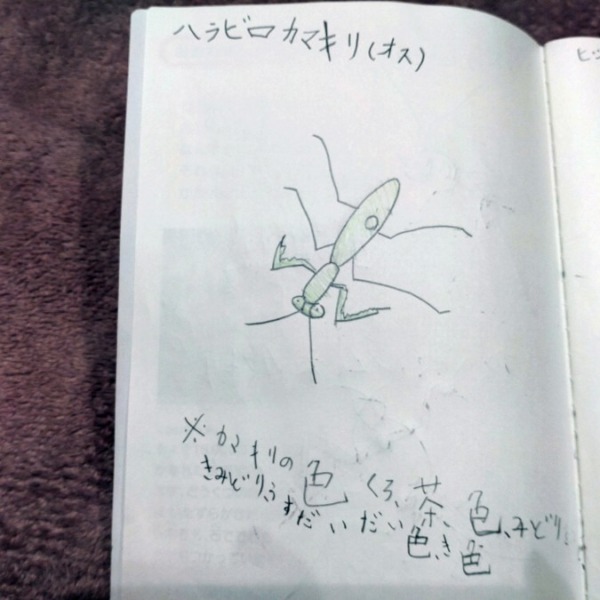 ハラビロカマキリ(オス)
※カマキリの色 くろ、茶色、みどり、
きみどり、うすだいだい色、き色